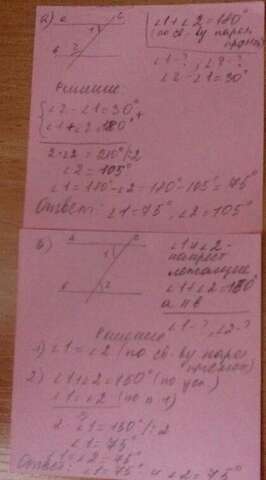 а) a c
∠1+∠2=180°
(по св-ву парал
прямой)
1
в 2
∠1-?, ∠2-?
∠2-∠1=30°
Решение
{∠2-∠1=30° +
∠1+∠2=180°
2·∠2=210°/:2
∠2=105°
∠1=180°-∠2=180°-105°=75°
Ответ: ∠1=75°, ∠2=105°
б) a c
1
∠1 и ∠2 -
накрест
лежащие
в 2
∠1+∠2=150°
a II в
∠1-?, ∠2-?
Решение
1) ∠1=∠2 (по св-ву парал
прямой)
2) ∠1+∠2=150° (по усл.)
∠1=∠2 (по п 1)
2·∠1=150°/:2
∠1=75°
∠1=∠2=75°
Ответ: ∠1=75° и ∠2=75°